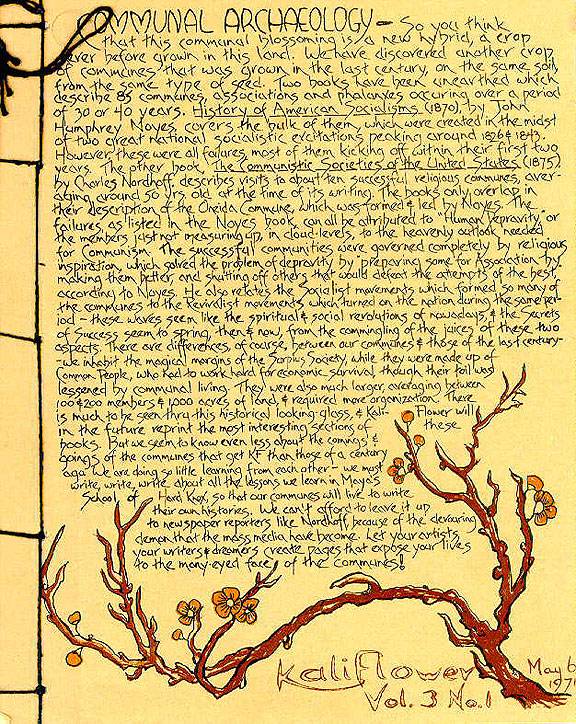 COMMUNAL ARCHAEOLOGY – So you think
that this communal blossoming is a new hybrid, a crop
never before grown in this land. We have discovered another crop
of communes that was grown in the last century, on the same soil,
from the same type of seed. Two books have been unearthed which
describe 85 communes, associations and Phalanxes occuring over a period
of 30 or 40 years. History of American Socialisms (1870), by John
Humphrey Noyes, covers the bulk of them, which were created in the midst
of two great national socialistic excitations peaking around 1826 & 1843.
However, these were all failures, most of them kicking off within their first two
years. The other book, The Communistic Societies of the United States (1875)
by Charles Nordhoff, describes visits to about ten successful religious communes, aver-
aging around 50 yrs. old at the time of its writing. The books only overlap in
their description of the Oneida Commune, which was formed & led by Noyes. The
failures, as listed in the Noyes book, can all be attributed to "Human Depravity," or
the members just not measuring up, in cloud-levels, to the heavenly outlook needed
for Communism. The successful communities were governed completely by religious
inspiration, which solved the problem of depravity by "preparing some for Association by
making them better, & shutting off others that would defeat the attempts of the best,"
according to Noyes. He also relates the Socialist movements which formed so many of
the communes to the Revivalist movements which turned on the nation during the same per-
iod – these waves seem like the spiritual & social revolutions of nowadays, & the Secrets
of Success seem to spring, then & now, from the commingling of the juices of these two
aspects. There are differences, of course, between our communes & those of the last century–
–we inhabit the magical margins of the Surplus Society, while they were made up of
Common People, who had to work hard for economic survival, though their toil was
lessened by communal living. They were also much larger, averaging between
100 & 200 members & 1,000 acres of land, & required more organization. There
is much to be seen thru this historical looking-glass, & Kali-Flower will
in the future reprint the most interesting sections of these
books. But we seem to know even less about the comings &
goings of the communes that get KF than those of a century
ago. We are doing so little learning from each other – we must
write, write, write about all the lessons we learn in Maya's
School of Hard Knox, so that our communes will live to write
their own histories. We can't afford to leave it up
to newspaper reporters like Nordhoff, because of the devouring
demon that the mass media have become. Let your artists,
your writers & dreamers create pages that expose your lives
to the many-eyed face of the communes!
Kaliflower
Vol. 3 No. 1
May 6
1971